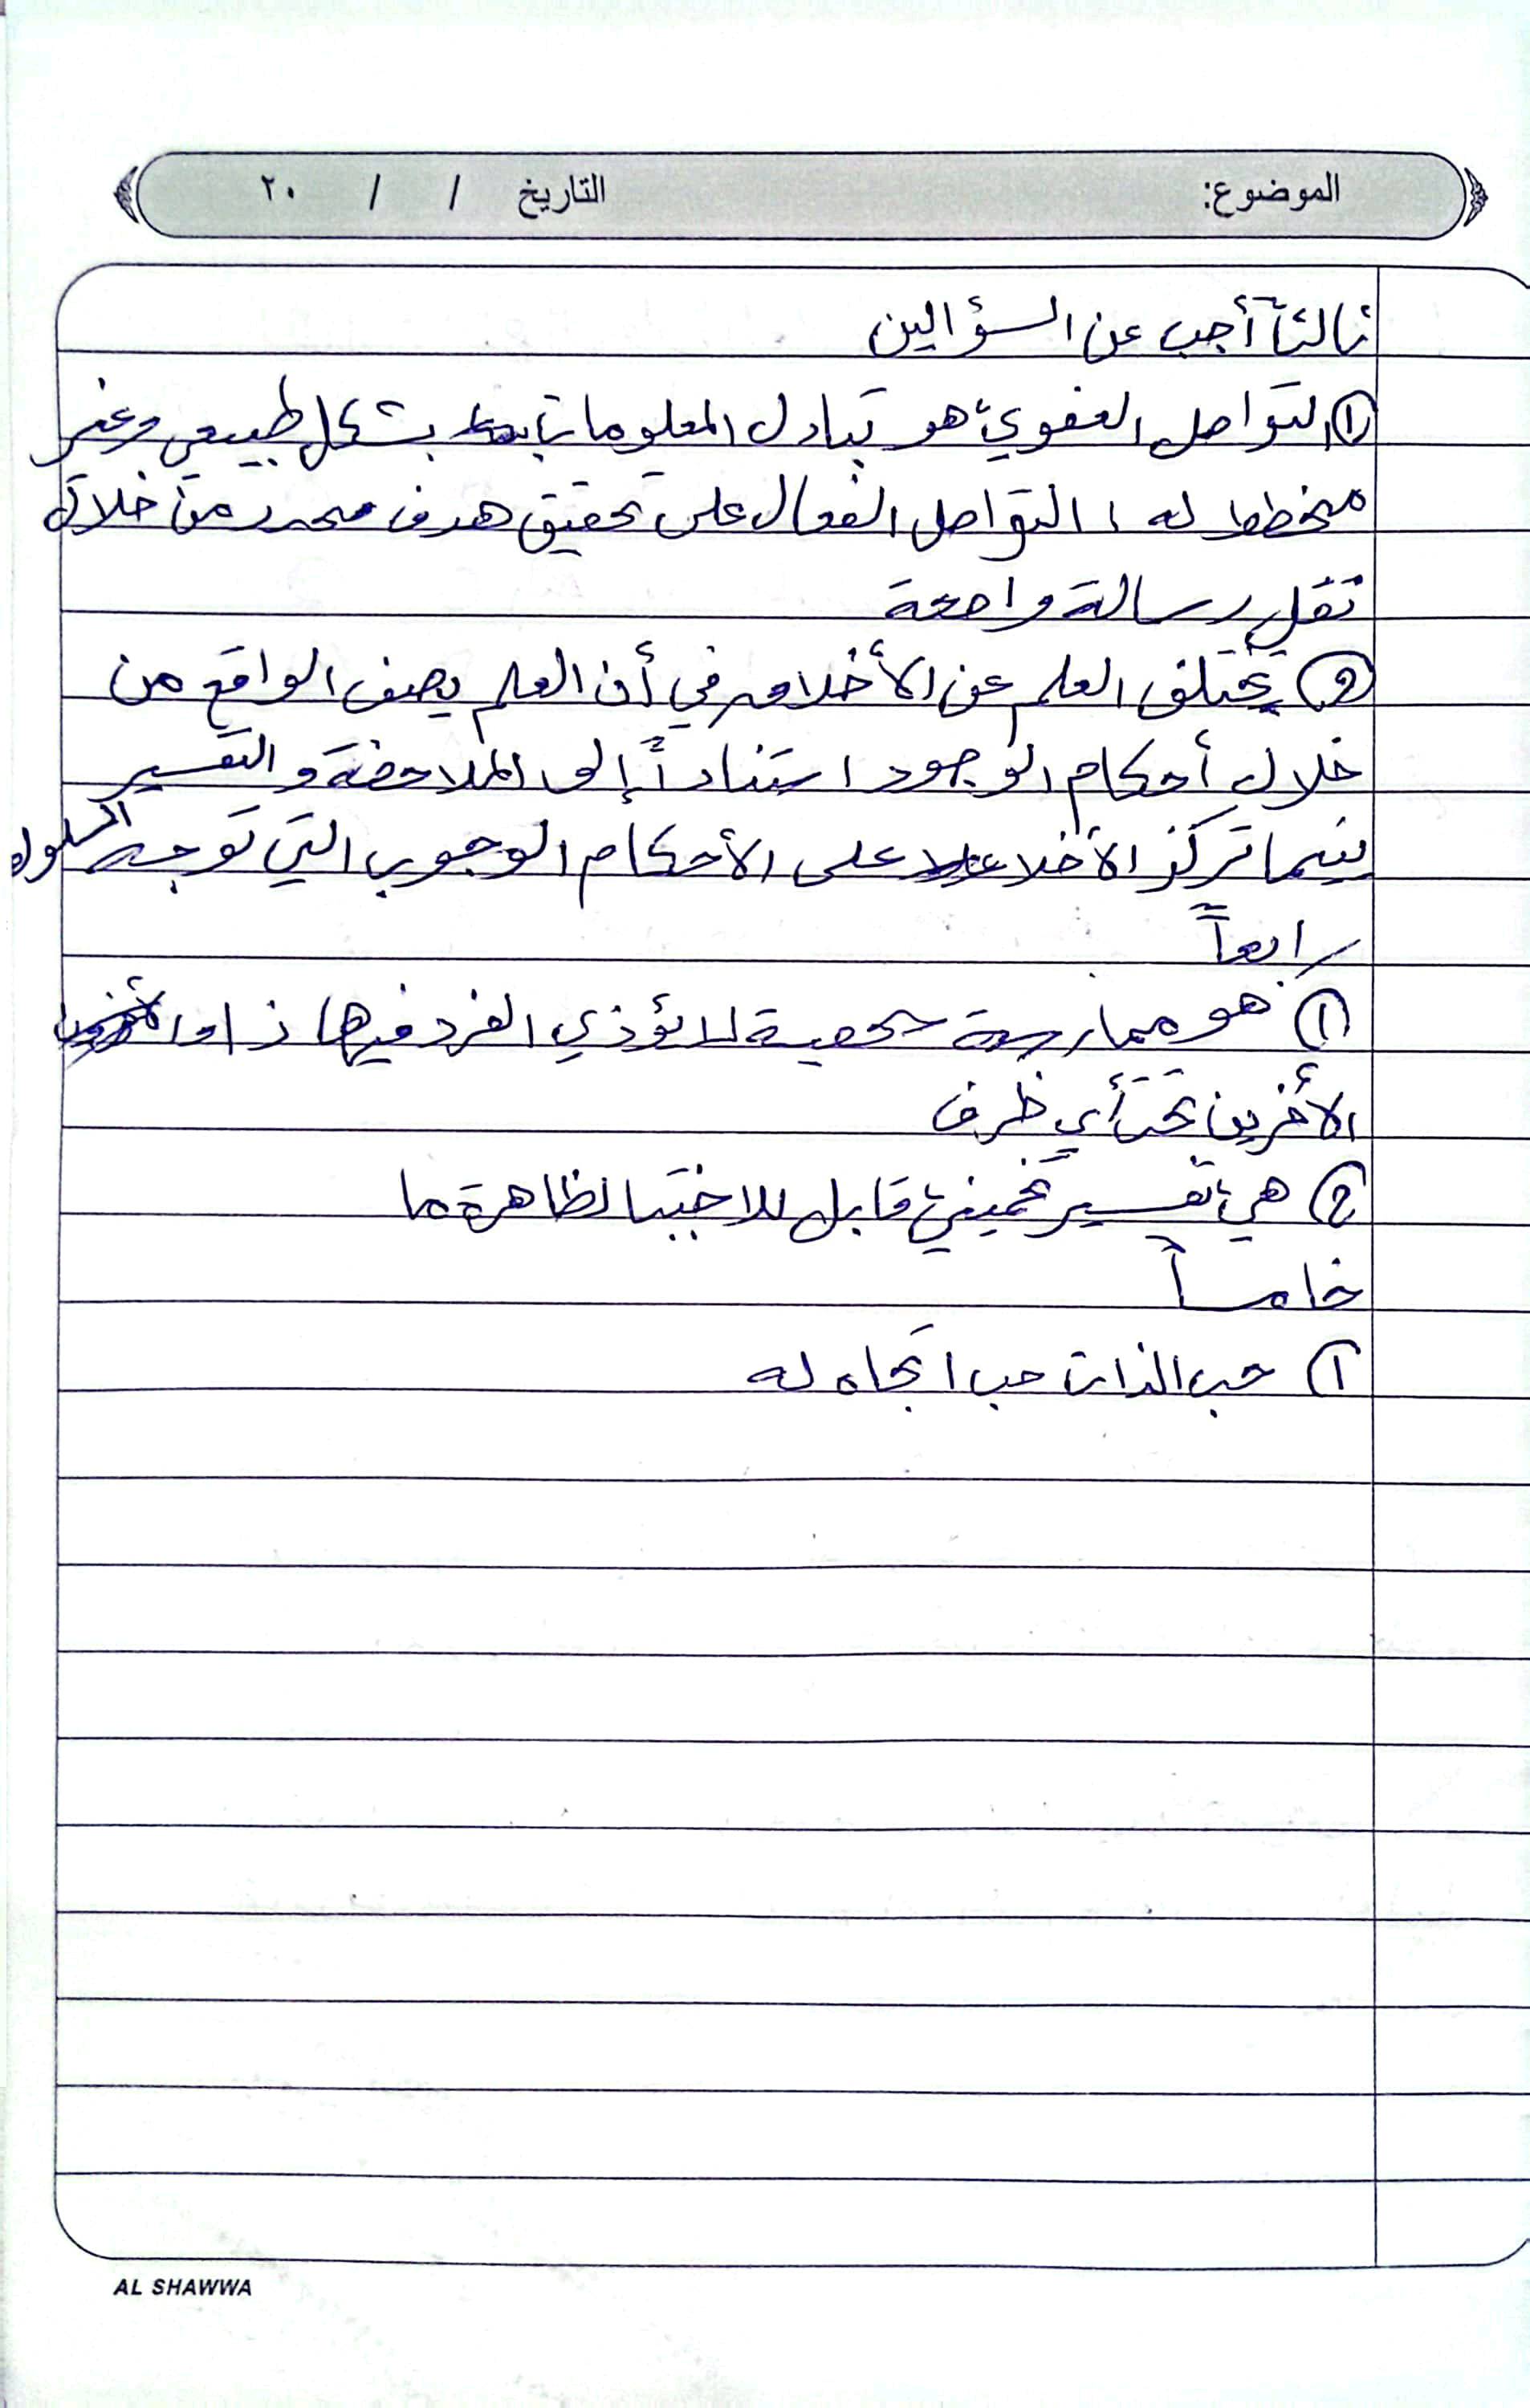 الموضوع: التاريخ / / ٢٠
ثالثاً أجب عن السؤالين
① التواصل العفوي: هو تبادل المعلومات بشكل طبيعي وغير
مخطط له، التواصل الفعال على تحقيق هدف محدد من خلال
نقل رسالة واضحة
② يختلف العلم عن الأخلاق في أن العلم يصف الواقع من
خلال أحكام الوجود استناداً إلى الملاحضة والتفسير
بينما تركز الأخلا على الأحكام الوجوب التي توجه السلوك
رابعاً
① هو ممارسة لا يؤذي الفرد فيها ذا او
الأخرين تحت أي ظرف
② هي تفسير تخميني قابل للاختبا لظاهرة ما
خامساً
① حب الذات حب اتجاه له
AL SHAWWA